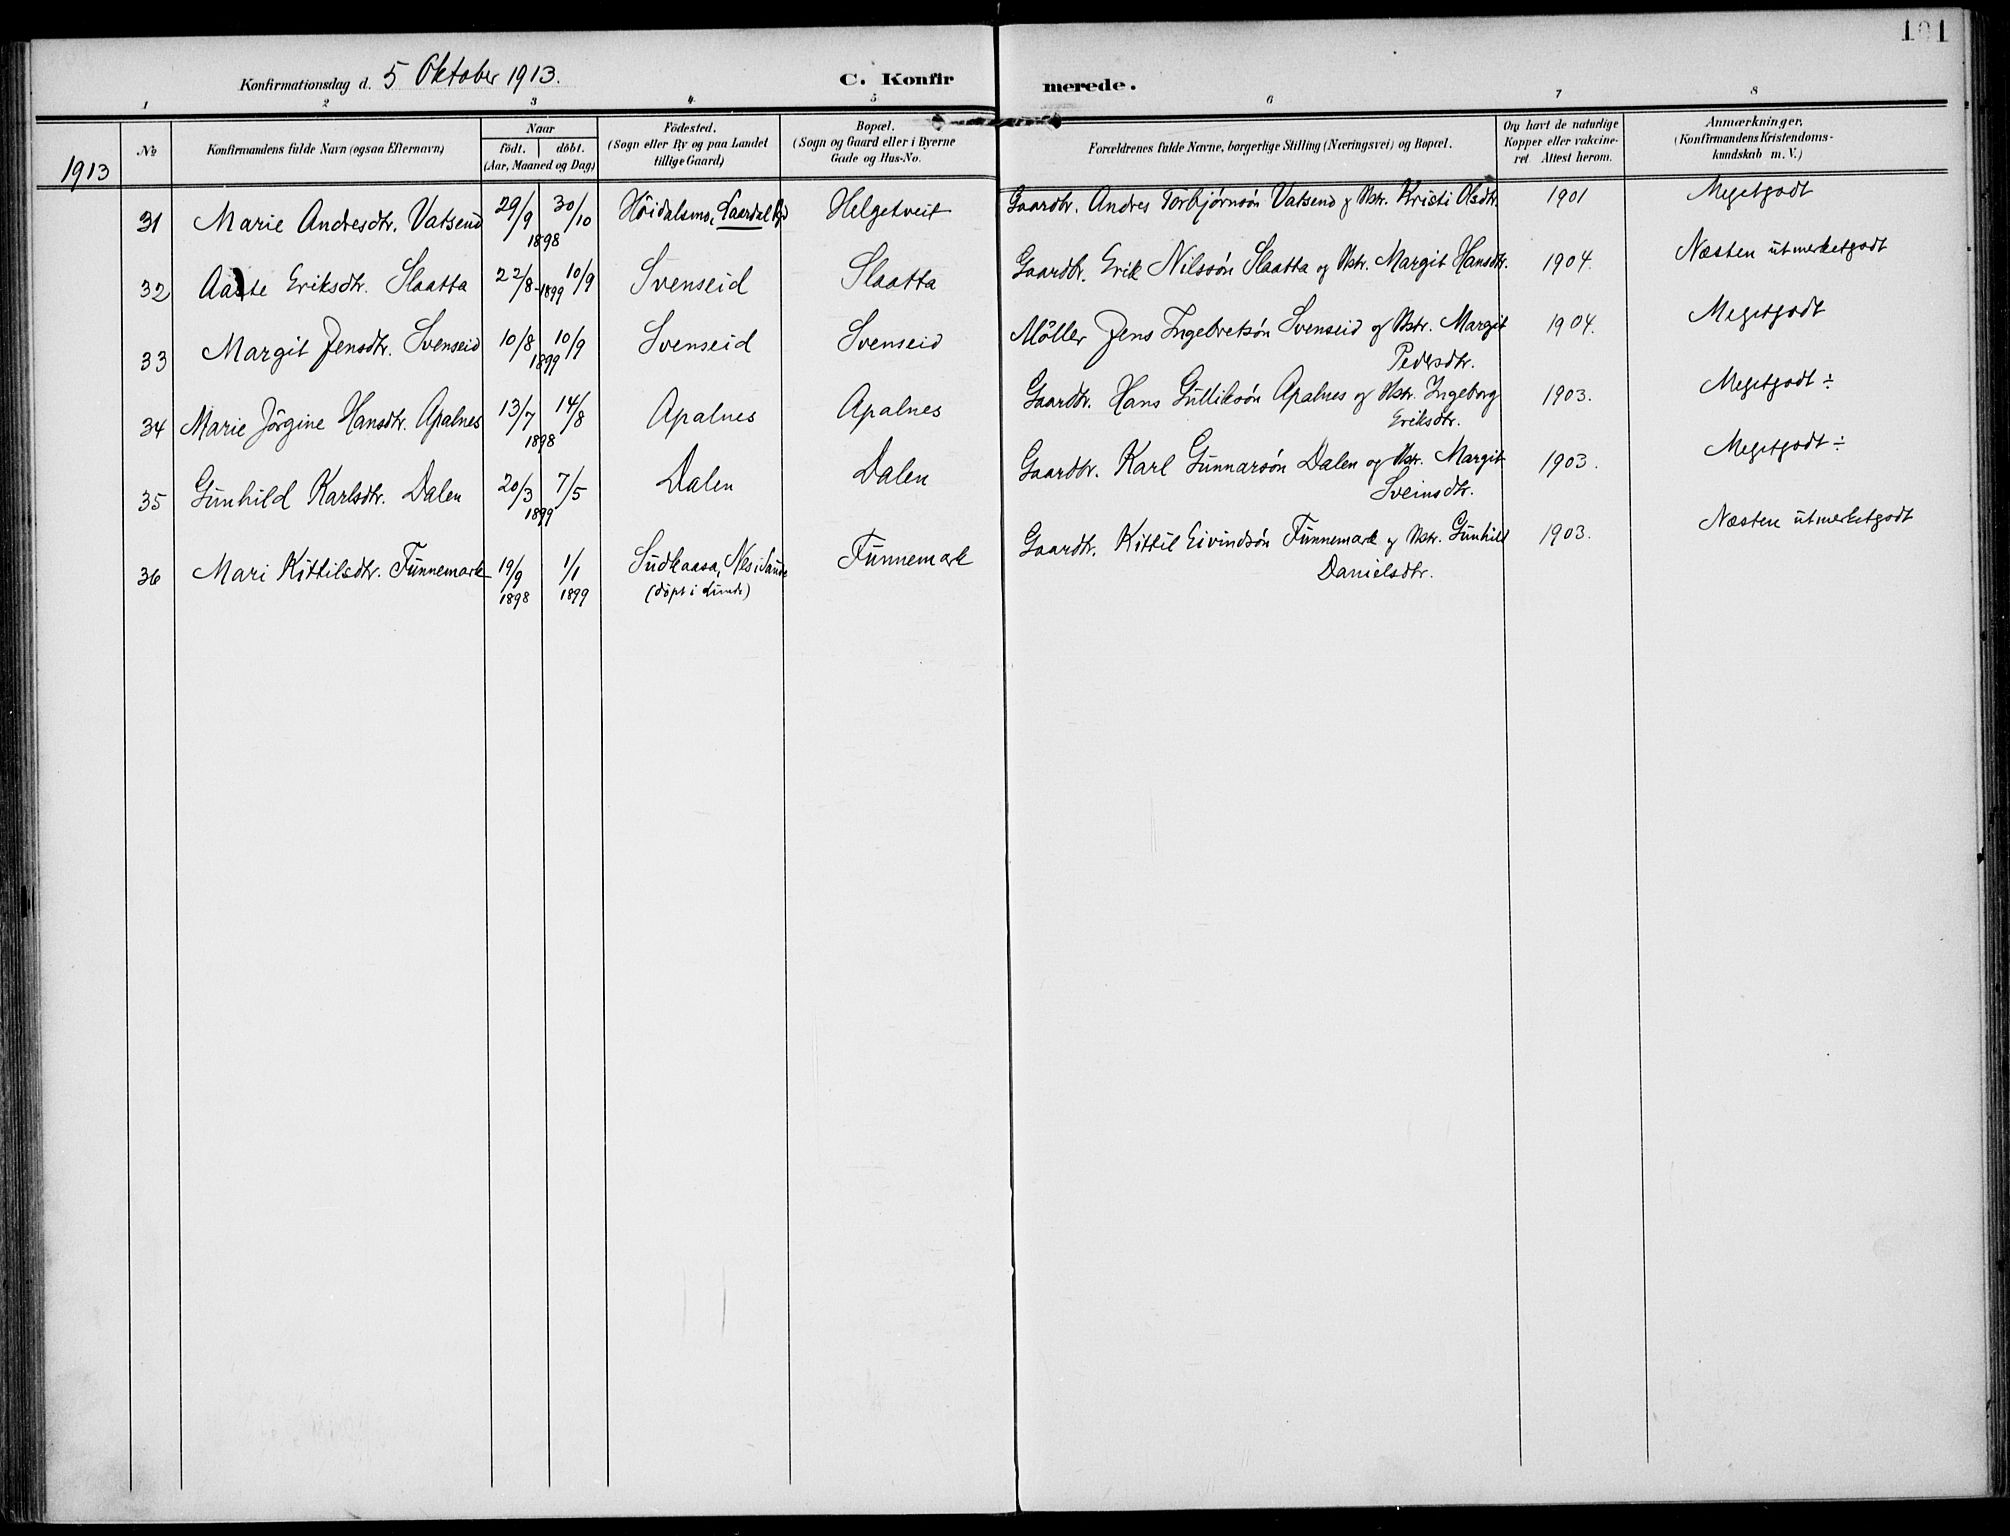 101
Konfirmationsdag d. 5 Oktober 1913. C. Konfirmerede.
1 2 3 4 5 6 7 8
1913
No
Konfirmandens fulde Navn (ogsaa Efternavn)
Naar
födt. döbt.
(Aar, Maaned og Dag)
Födested.
(Sogn eller By og paa Landet
tillige Gaard)
Bopæl.
(Sogn og Gaard eller i Byerne
Gade og Hus-No.
Forældrenes fulde Navne, borgerlige Stilling (Næringsvei) og Bopæl.
Om havt de naturlige
Kopper eller vakcine-
ret Attest herom.
Anmærkninger,
(Konfirmandens Kristendoms-
kundskab m. V.)
31 Marie Andresdtr. Vatsend 29/9 30/10 1898 Höidalsmo, Laardal Helgetveit Gaardbr. Andres Torbjørnsön Vatsend og Hstr. Kristi Olsdtr. 1901 Megetgodt
32 Aaste Eriksdtr. Slaatta 22/8 - 1899 10/9 Svenseid Slaatta Gaardbr. Erik Nilssön Slaatta og Hstr. Margit Hansdtr. 1904. Næsten utmerketgodt
33 Margit Jensdtr. Svenseid 10/8 10/9 1899 Svenseid Svenseid Möller Jens Ingebretsön Svenseid og Hstr. Margit 1904. Megetgodt
Pedersdtr.
34 Marie Jörgine Hansdtr. Apalnes 13/7 14/8 1898 Apalnes Apalnes Gaardbr. Hans Gulliksön Apalnes og Hstr. Ingeborg 1903. Megetgodt ÷
Eriksdtr.
35 Gunhild Karlsdtr. Dalen 20/3 7/5 1899 Dalen Dalen Gaardbr. Karl Gunnarsön Dalen og Hstr. Margit 1903. Megetgodt ÷
Sveinsdtr.
36 Mari Kittilsdtr. Funnemark 19/9 1898 1/1 1899 Sudkaasa, Nes i Saude Funnemark Gaardbr. Kittil Eivindsön Funnemark og Hstr. Gunhild 1903. Næsten utmerketgodt
(döpt i Lunde) Danielsdtr.